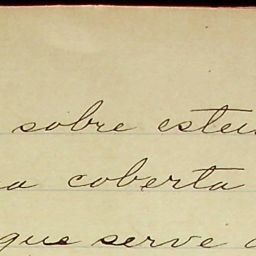 sobre esteu
a coberta
que serve